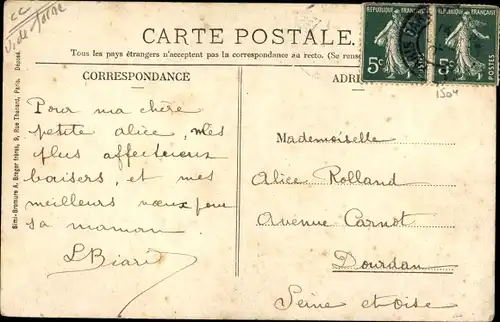 CARTE POSTALE
Tous les pays étrangers n'acceptent pas la correspondance au recto. (Se rens
CORRESPONDANCE
ADR
RÉPUBLIQUE FRANÇAISE
5c
POSTES
RÉPUBLIQUE FRANÇAISE
5c
POSTES
Simi-Bromure A. Breger frères, 9, Rue Thénard, Paris. Déposé.
Pour ma chère
petite alice, mes
plus affectueux
baisers, et mes
meilleurs vœux pour
sa maman
L Biari
Mademoiselle
Alice Rolland
Avenue Carnot
Dourdan
Seine et oise